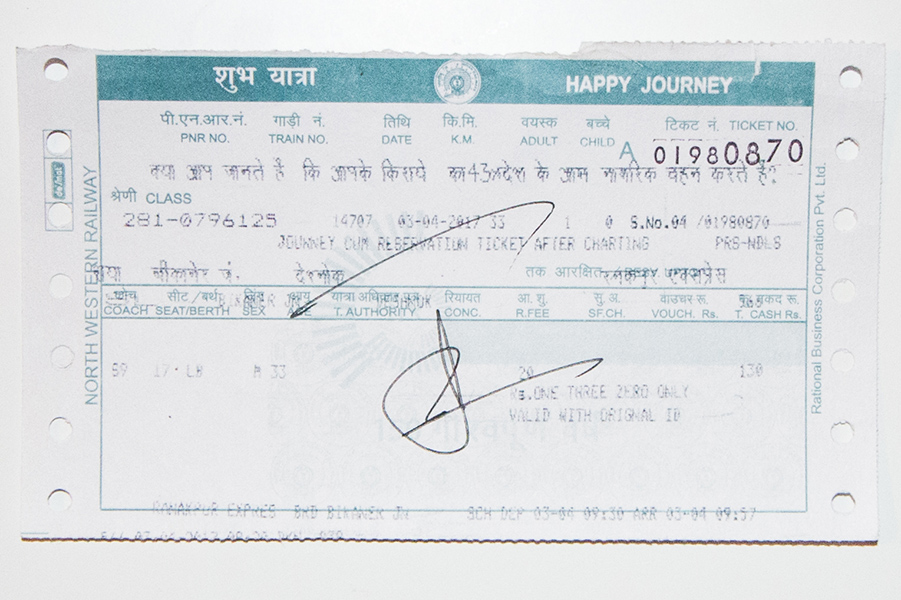 शुभ यात्रा HAPPY JOURNEY
पी.एन.आर.नं. गाड़ी नं. तिथि कि.मि. वयस्क बच्चे टिकट नं. TICKET NO.
PNR NO. TRAIN NO. DATE K.M. ADULT CHILD A 01980870
क्या आप जानते है कि आपके किराये का 43% देश के आम नागरिक वहन करते है?
श्रेणी CLASS
281-0796125 14707 03-04-2017 33 1 0 S.No.04 /01980870
JOURNEY CUM RESERVATION TICKET AFTER CHARTING PRS-NDLS
बीकानेर जं. देशनोक तक आरक्षित
कोच सीट/बर्थ लिंग आयु यात्रा रियायत आ. शु. सु. अ. वाउचर रू. कु. नकद रू.
COACH SEAT/BERTH SEX AGE T. AUTHORITY CONC. R.FEE SF.CH. VOUCH. Rs. T. CASH Rs.
S9 17 LB M 33 20 130
Rs.ONE THREE ZERO ONLY
VALID WITH ORIGNAL ID
RANAKPUR EXPRES BRD BIKANER JN SCH DEP 03-04 09:30 ARR 03-04 09:57
NORTH WESTERN RAILWAY
Rational Business Corporation Pvt. Ltd.